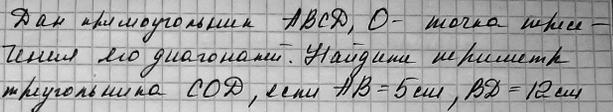 Дан прямоугольник ABCD, O - точка пересе-
чения его диагоналей. Найдите периметр
треугольника COD, если AB = 5см, BD = 12см